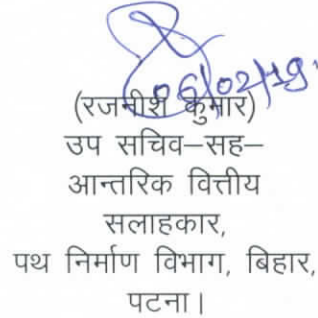 06/02/19
(रजनीश कुमार)
उप सचिव–सह–
आन्तरिक वित्तीय
सलाहकार,
पथ निर्माण विभाग, बिहार,
पटना।